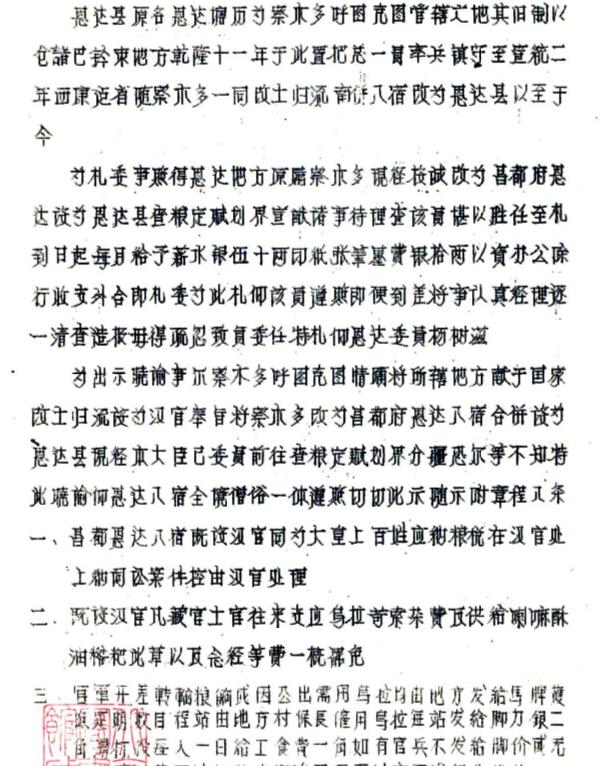 恩达县原名恩达塘历为察木多呼图克图管辖之地其旧制以
仓诸巴铃束地方乾隆十一年于此置把总一员率兵镇守至宣统二
年西康建省随察木多一同改土归流南併八宿改为恩达县以至于
今
为札委事照得恩达地方原隶察木多现经核诚改为昌都府恩
达改为恩达县查粮定赋划界宣猷诸事待理查该员堪以胜任至札
到日起每月给予薪水银伍十两印纸张笔墨费银拾两以资办公除
行政支外合即札委为此札仰该员遵照即便到差将事认真经理逐
一清查造报毋得疏忽致负委任特札仰恩达委员杨树滋
为出示晓谕事尔察木多呼图克图情愿将所辖地方献于国家
改土归流设为汉官奉旨将察木多改为昌都府恩达八宿合併设为
恩达县现经本大臣已委员前往查粮定赋划界分疆恐尔等不知特
此晓谕仰恩达八宿全境僧俗一体遵照切切此示随示附章程八条
一、昌都恩达八宿既设汉官同为大皇上百姓应纳粮税在汉官处
上纳闻讼案件控由汉官处理
二、既设汉官凡藏官土官往来支应乌拉等索杂费及供给喇嘛酥
油糌粑此草以及念经等费一概豁免
三、官军开差转输粮饷或因公出需用乌拉均由地方发给马牌
明数目程站由地方村保长雇用乌拉每站发给脚力银二
每人一日给工食费一角如有官兵不发给脚价